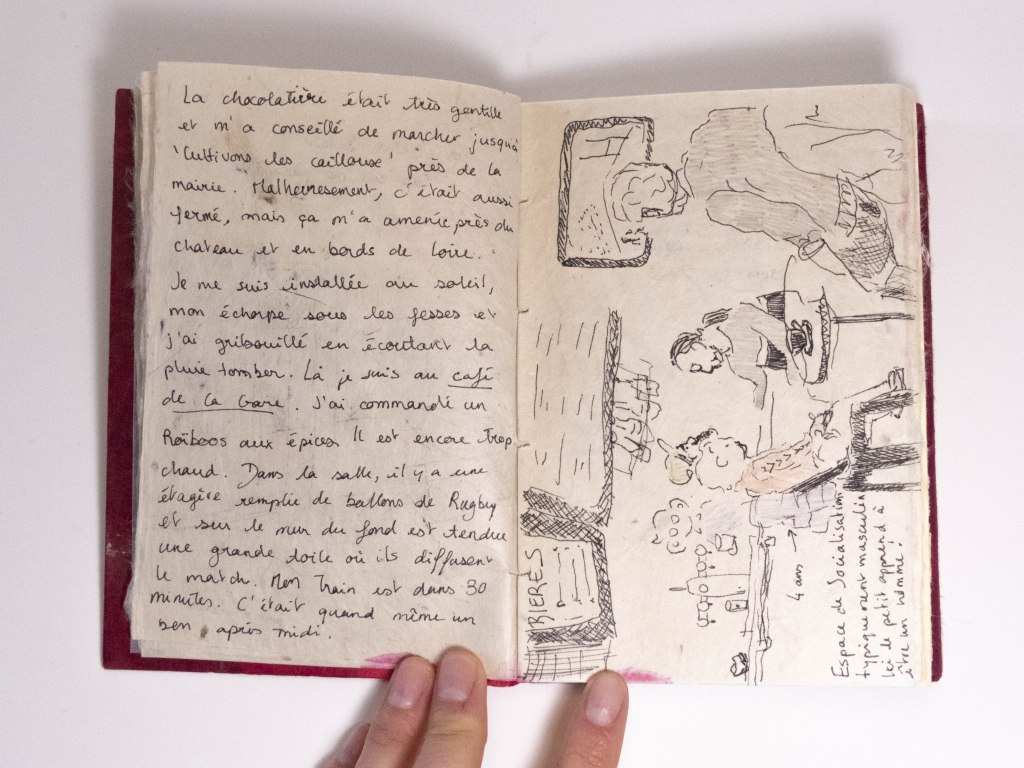 La chocolatière était très gentille
et m'a conseillé de marcher jusqu'à
'Cultivons les cailloux' près de la
mairie. Malheuresement, c'était aussi
fermé, mais ça m'a amenée près du
chateau et en bords de Loire.
Je me suis installée au soleil,
mon écharpe sous les fesses et
j'ai gribouillé en écoutant la
pluie tomber. Là je suis au café
de la Gare. J'ai commandé un
Roïboos aux épices Il est encore trop
chaud. Dans la salle, il y a une
étagère remplie de ballons de Rugby
et sur le mur du fond est tendue
une grande toile où ils diffusent
le match. Mon Train est dans 30
minutes. C'était quand même un
ben après midi.
BIERES
4 ans →
Espace de Socialisation
typiquement masculin
Ici le petit apprend à
être un homme!